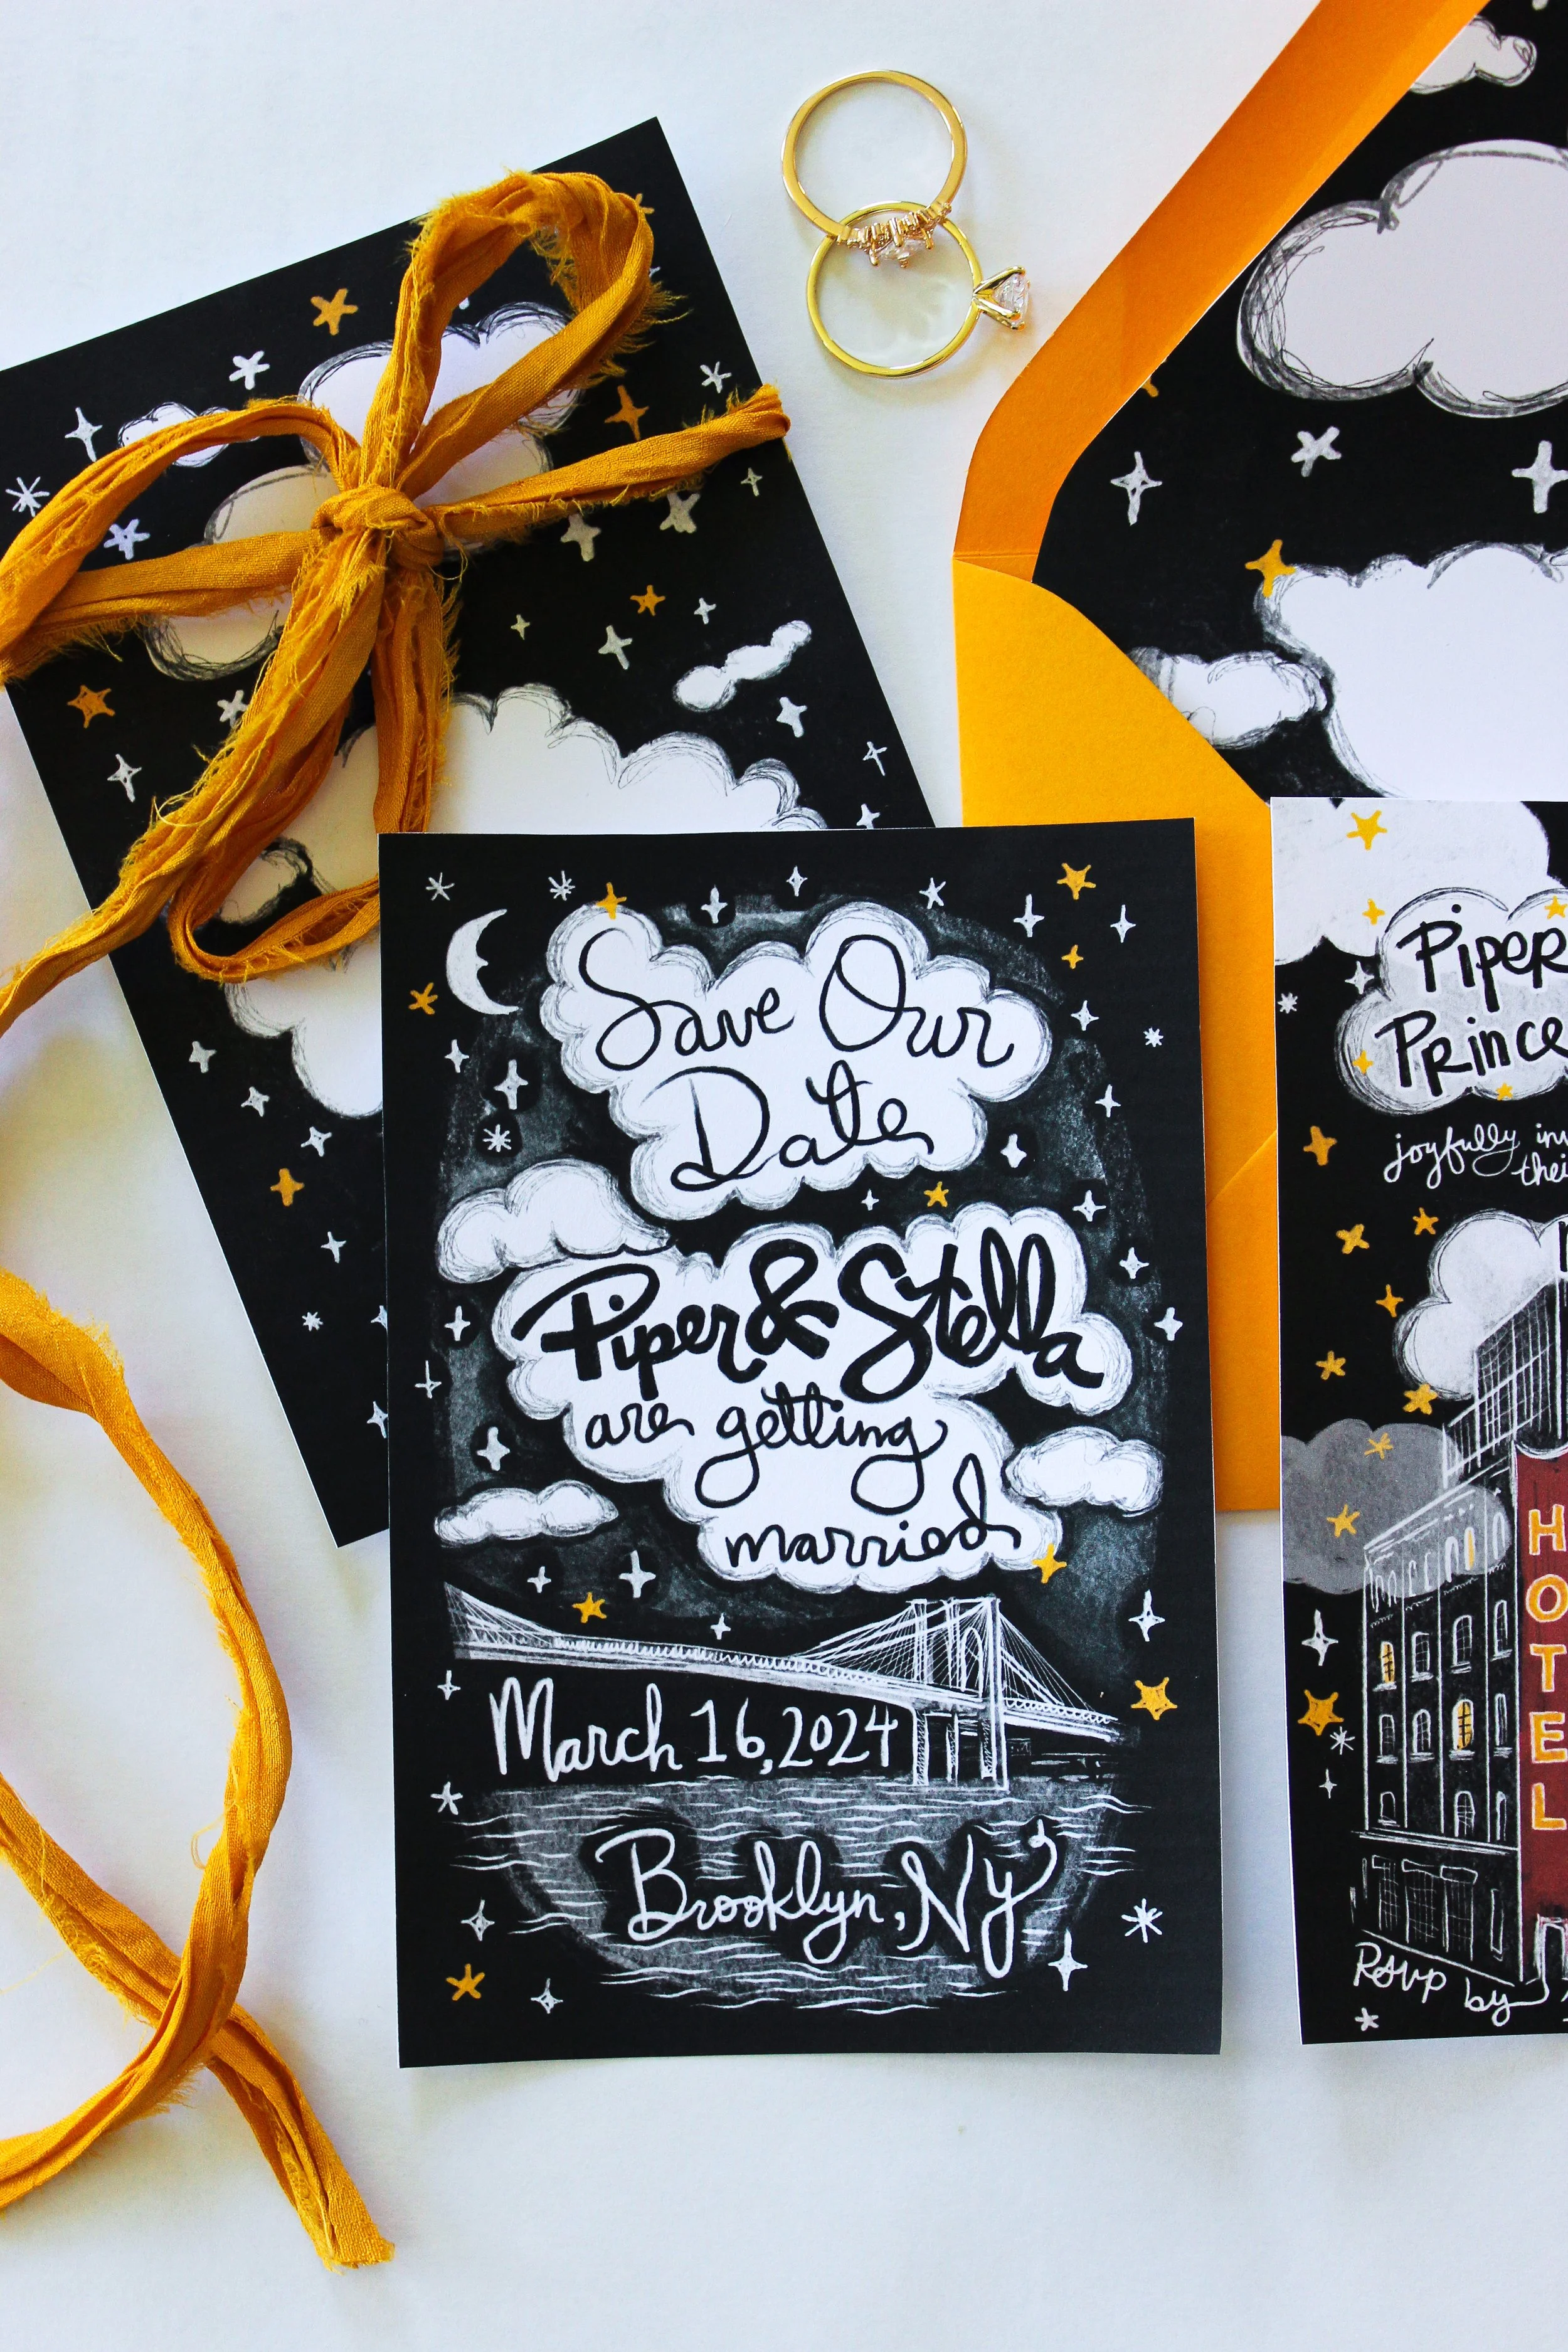 Save Our
Date
Piper & Stella
are getting
married
March 16, 2024
Brooklyn, NY
Piper
joyfully
HOTEL
RSVP by